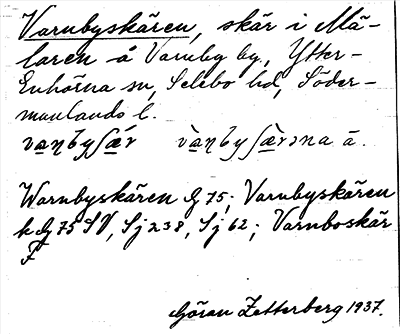 Varnbyskären, skär i Mä-
laren å Varnby by, Ytter-
Enhörna sn, Selebo hd, Söder-
manlands l.
va̱ŋbyʃǽ̱r và̱ŋbyʃæ̱̀rɔna ä.
Warnbyskären G 75; Varnbyskären
k G 75 SV, Sj 238, Sj 62; Varnboskär
F
Göran Zetterberg 1937.